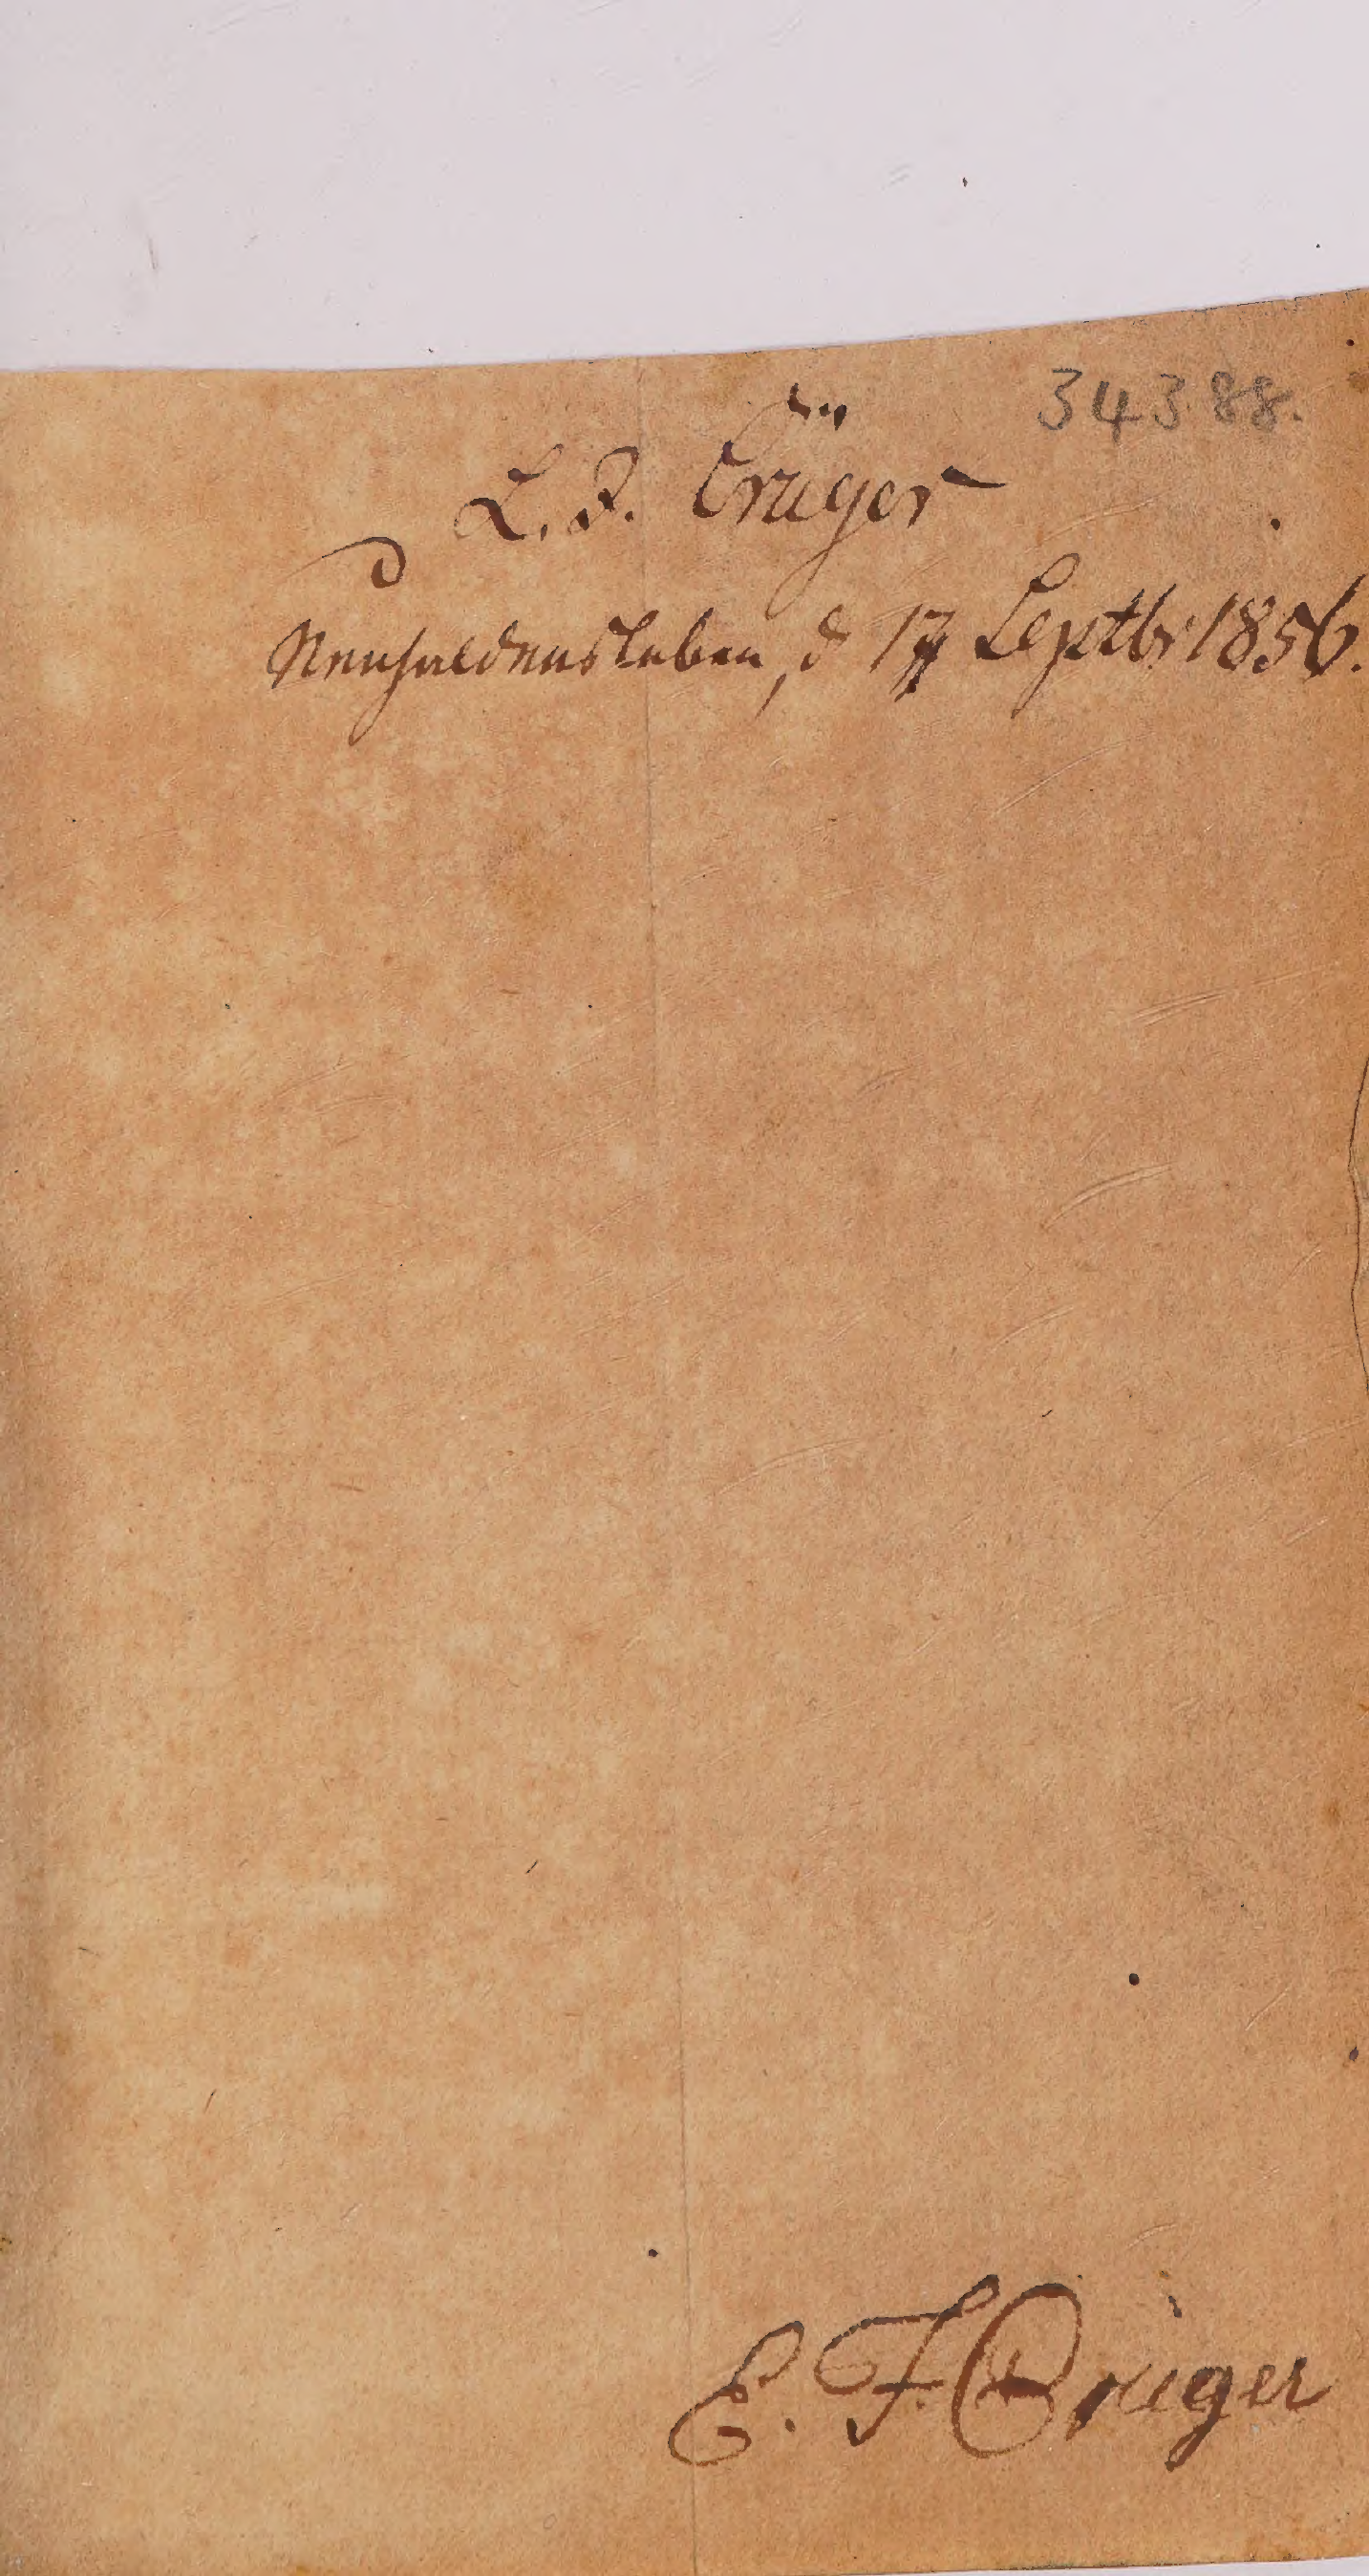 34388.
L. F. Crüger
Neuhaldensleben, d 17 Septbr 1856.
E. F. Crüger